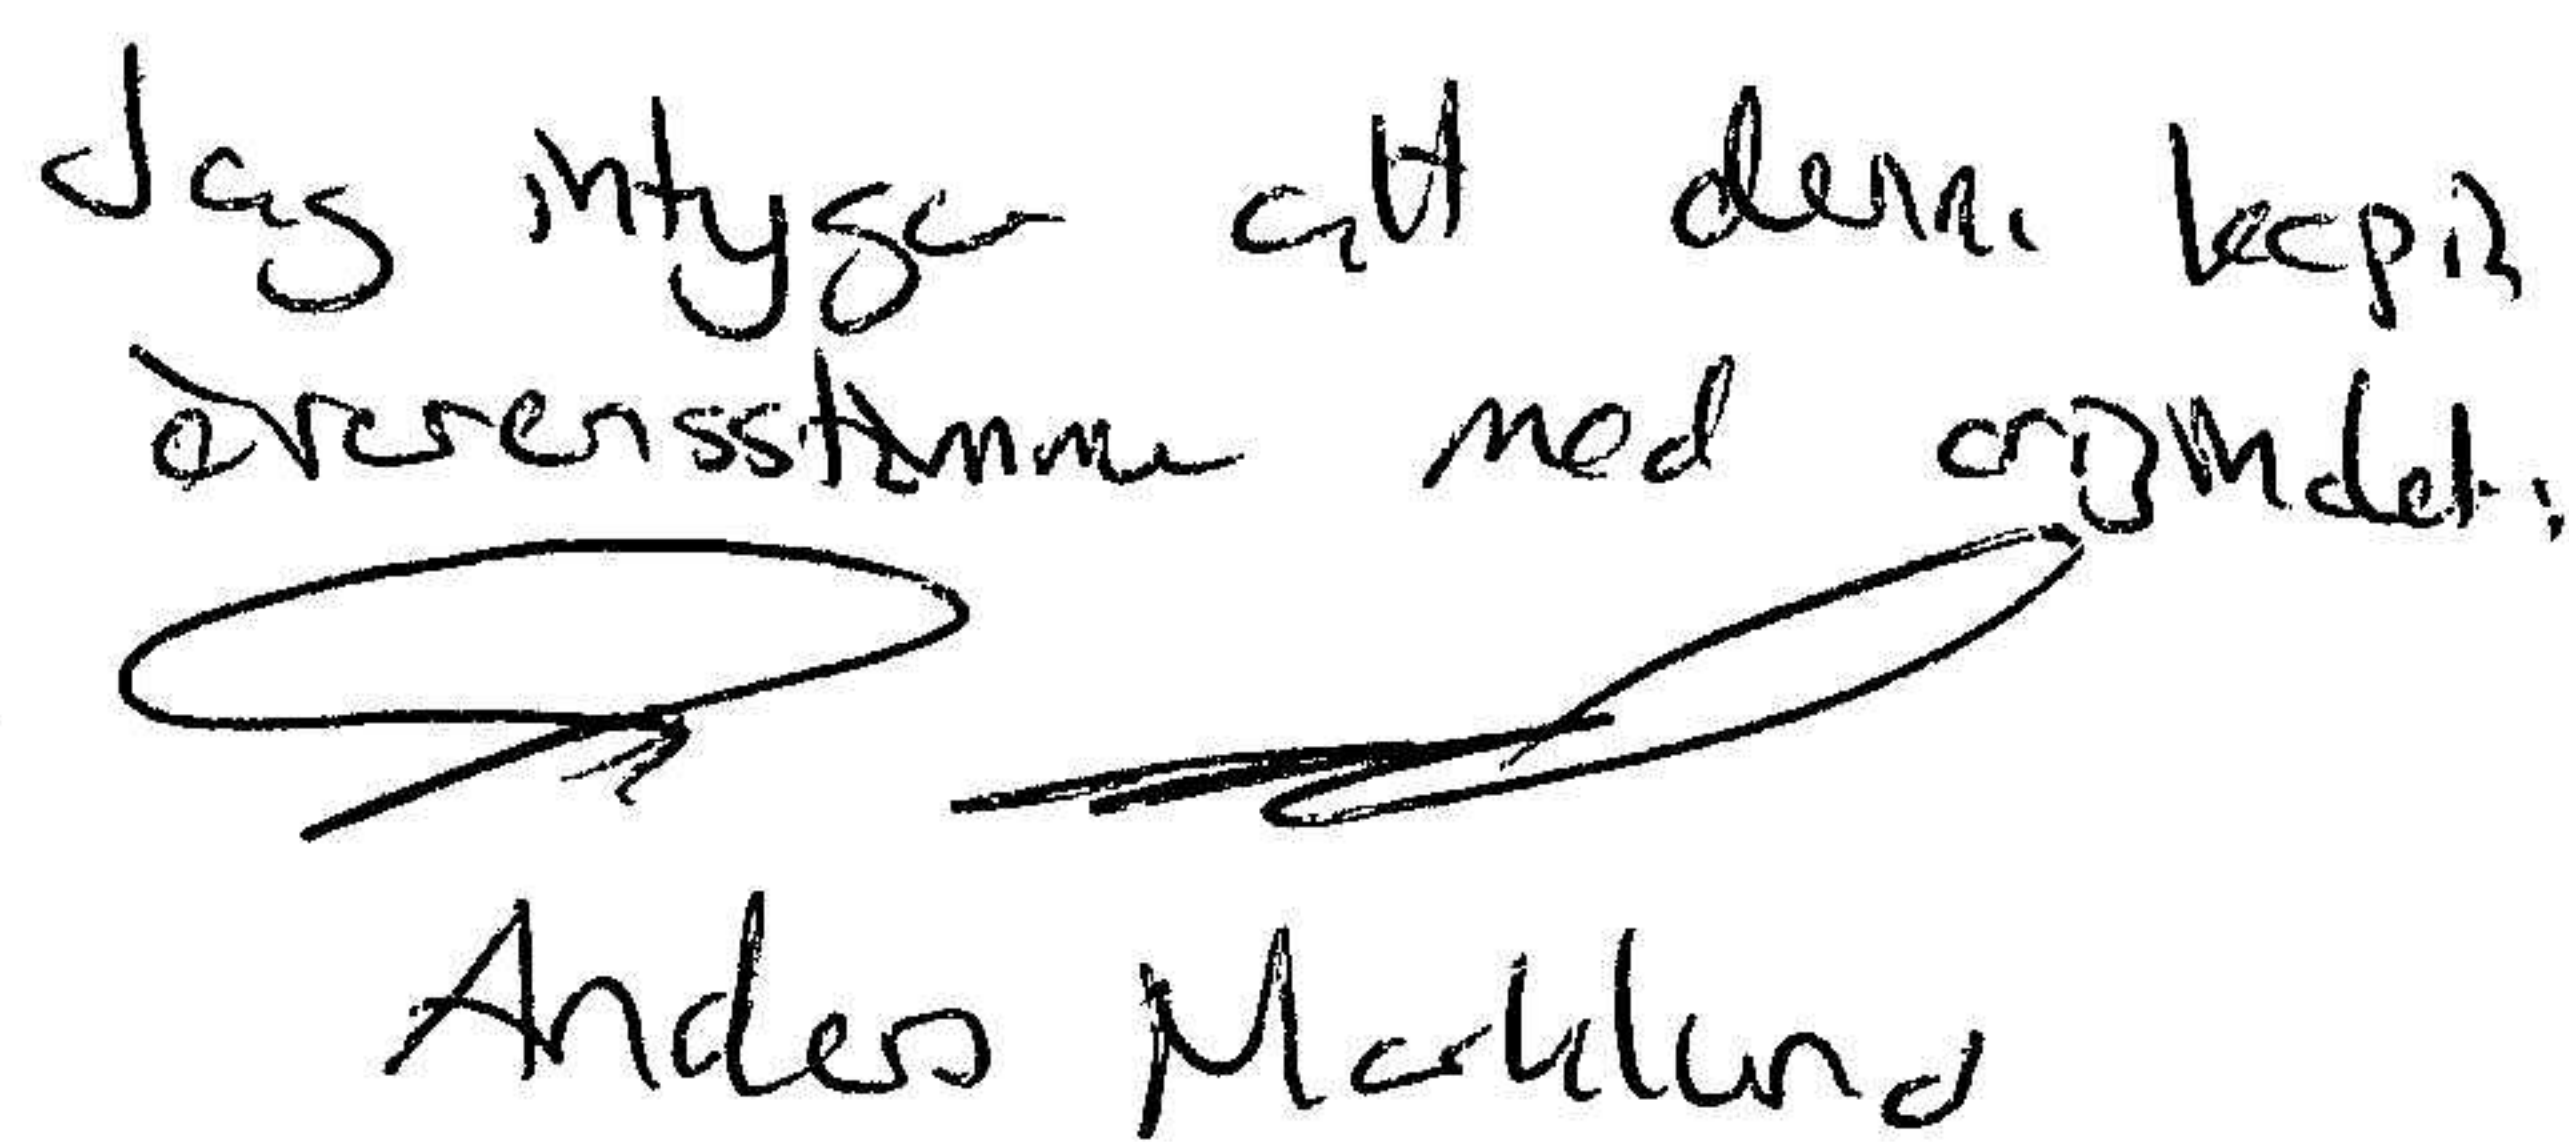 Jag intygar att denna kopia
överensstämmer med originalet.
Anders Marklund